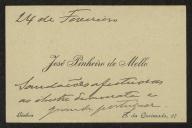 24 de Fevereiro
José Pinheiro de Mello
Saudações afectuosas
ao illustre democrata e
grande portuguez.
Lisboa
R. da Quintinha, 17